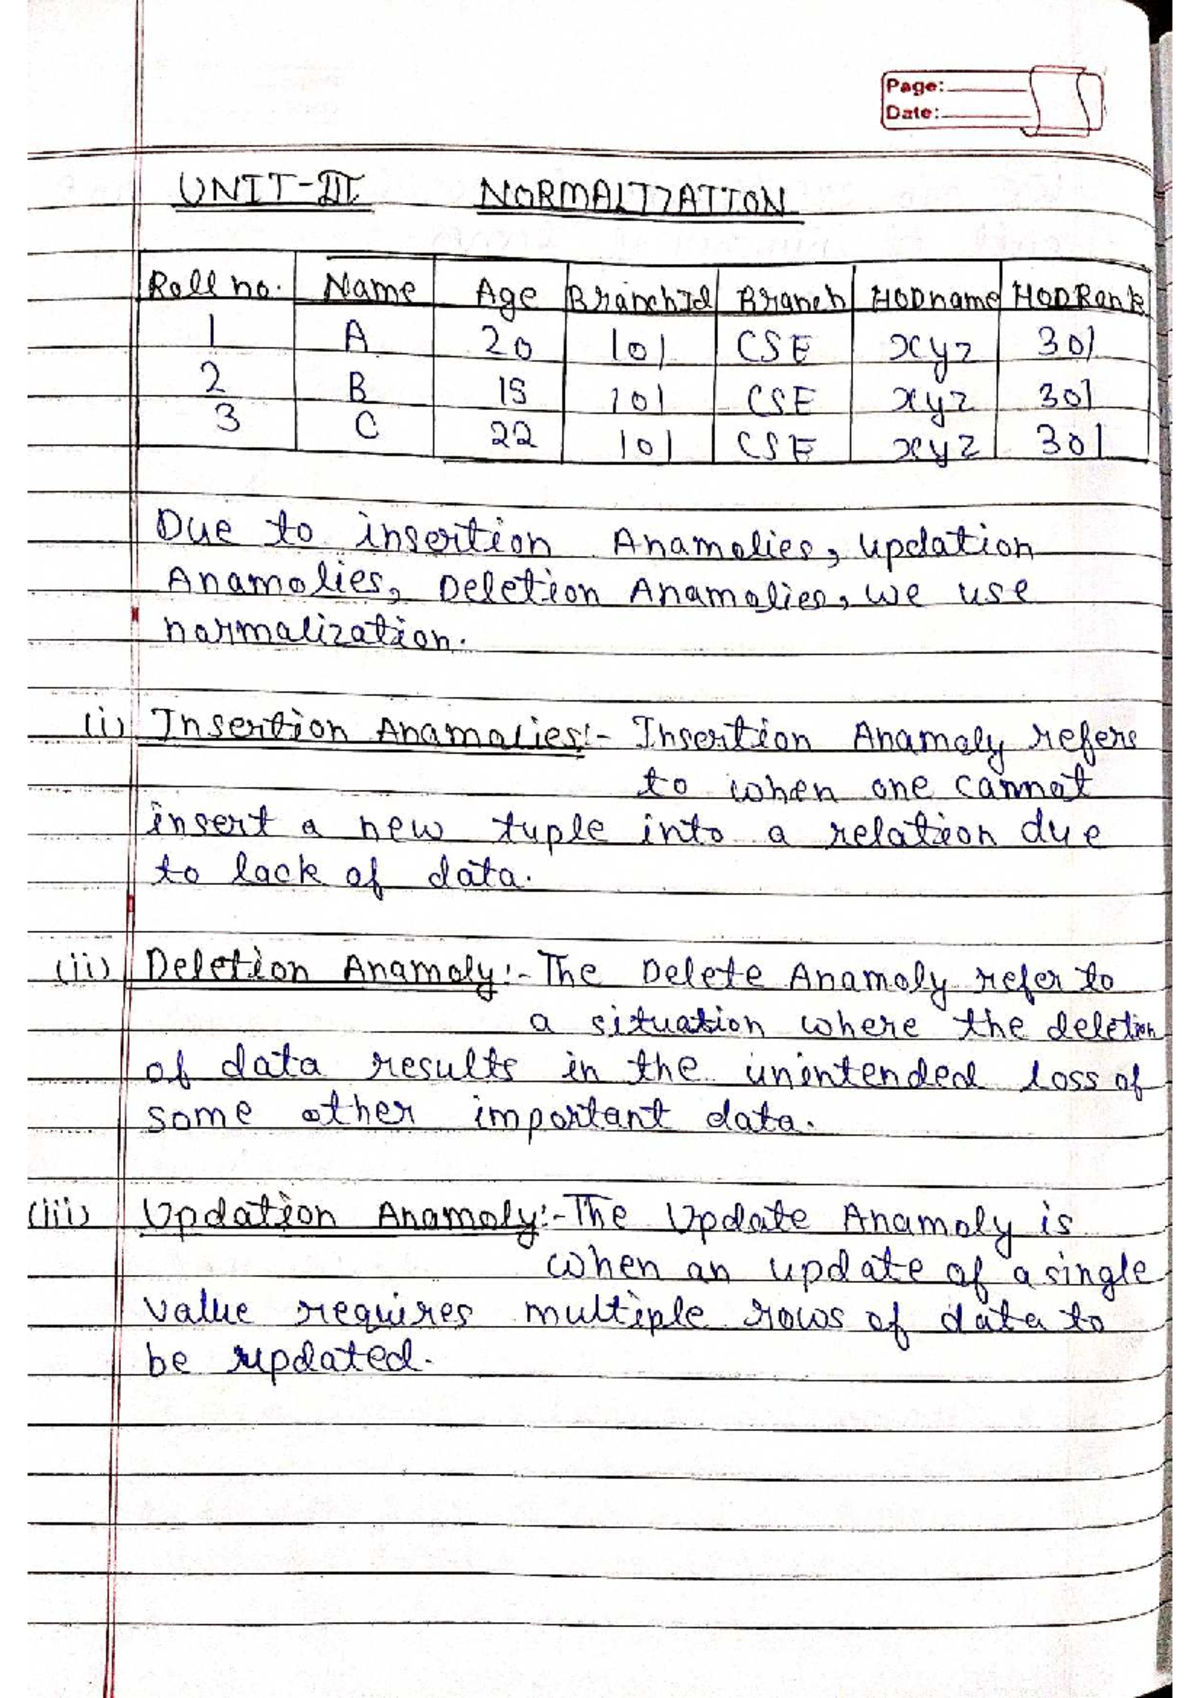 Page:
Date:
UNIT-III NORMALIZATION
Roll no. Name Age BranchId Branch HODname HODRank
1 A 20 101 CSE xyz 301
2 B 19 101 CSE xyz 301
3 C 22 101 CSE xyz 301
Due to insertion Anamolies, updation
Anamolies, Deletion Anamolies, we use
normalization.
(i) Insertion Anamolies:- Insertion Anamoly refers
to when one cannot
insert a new tuple into a relation due
to lack of data.
(ii) Deletion Anamoly:- The Delete Anamoly refer to
a situation where the deletion
of data results in the unintended loss of
some other important data.
(iii) Updation Anamoly:- The Update Anamoly is
when an update of a single
value requires multiple rows of data to
be updated.